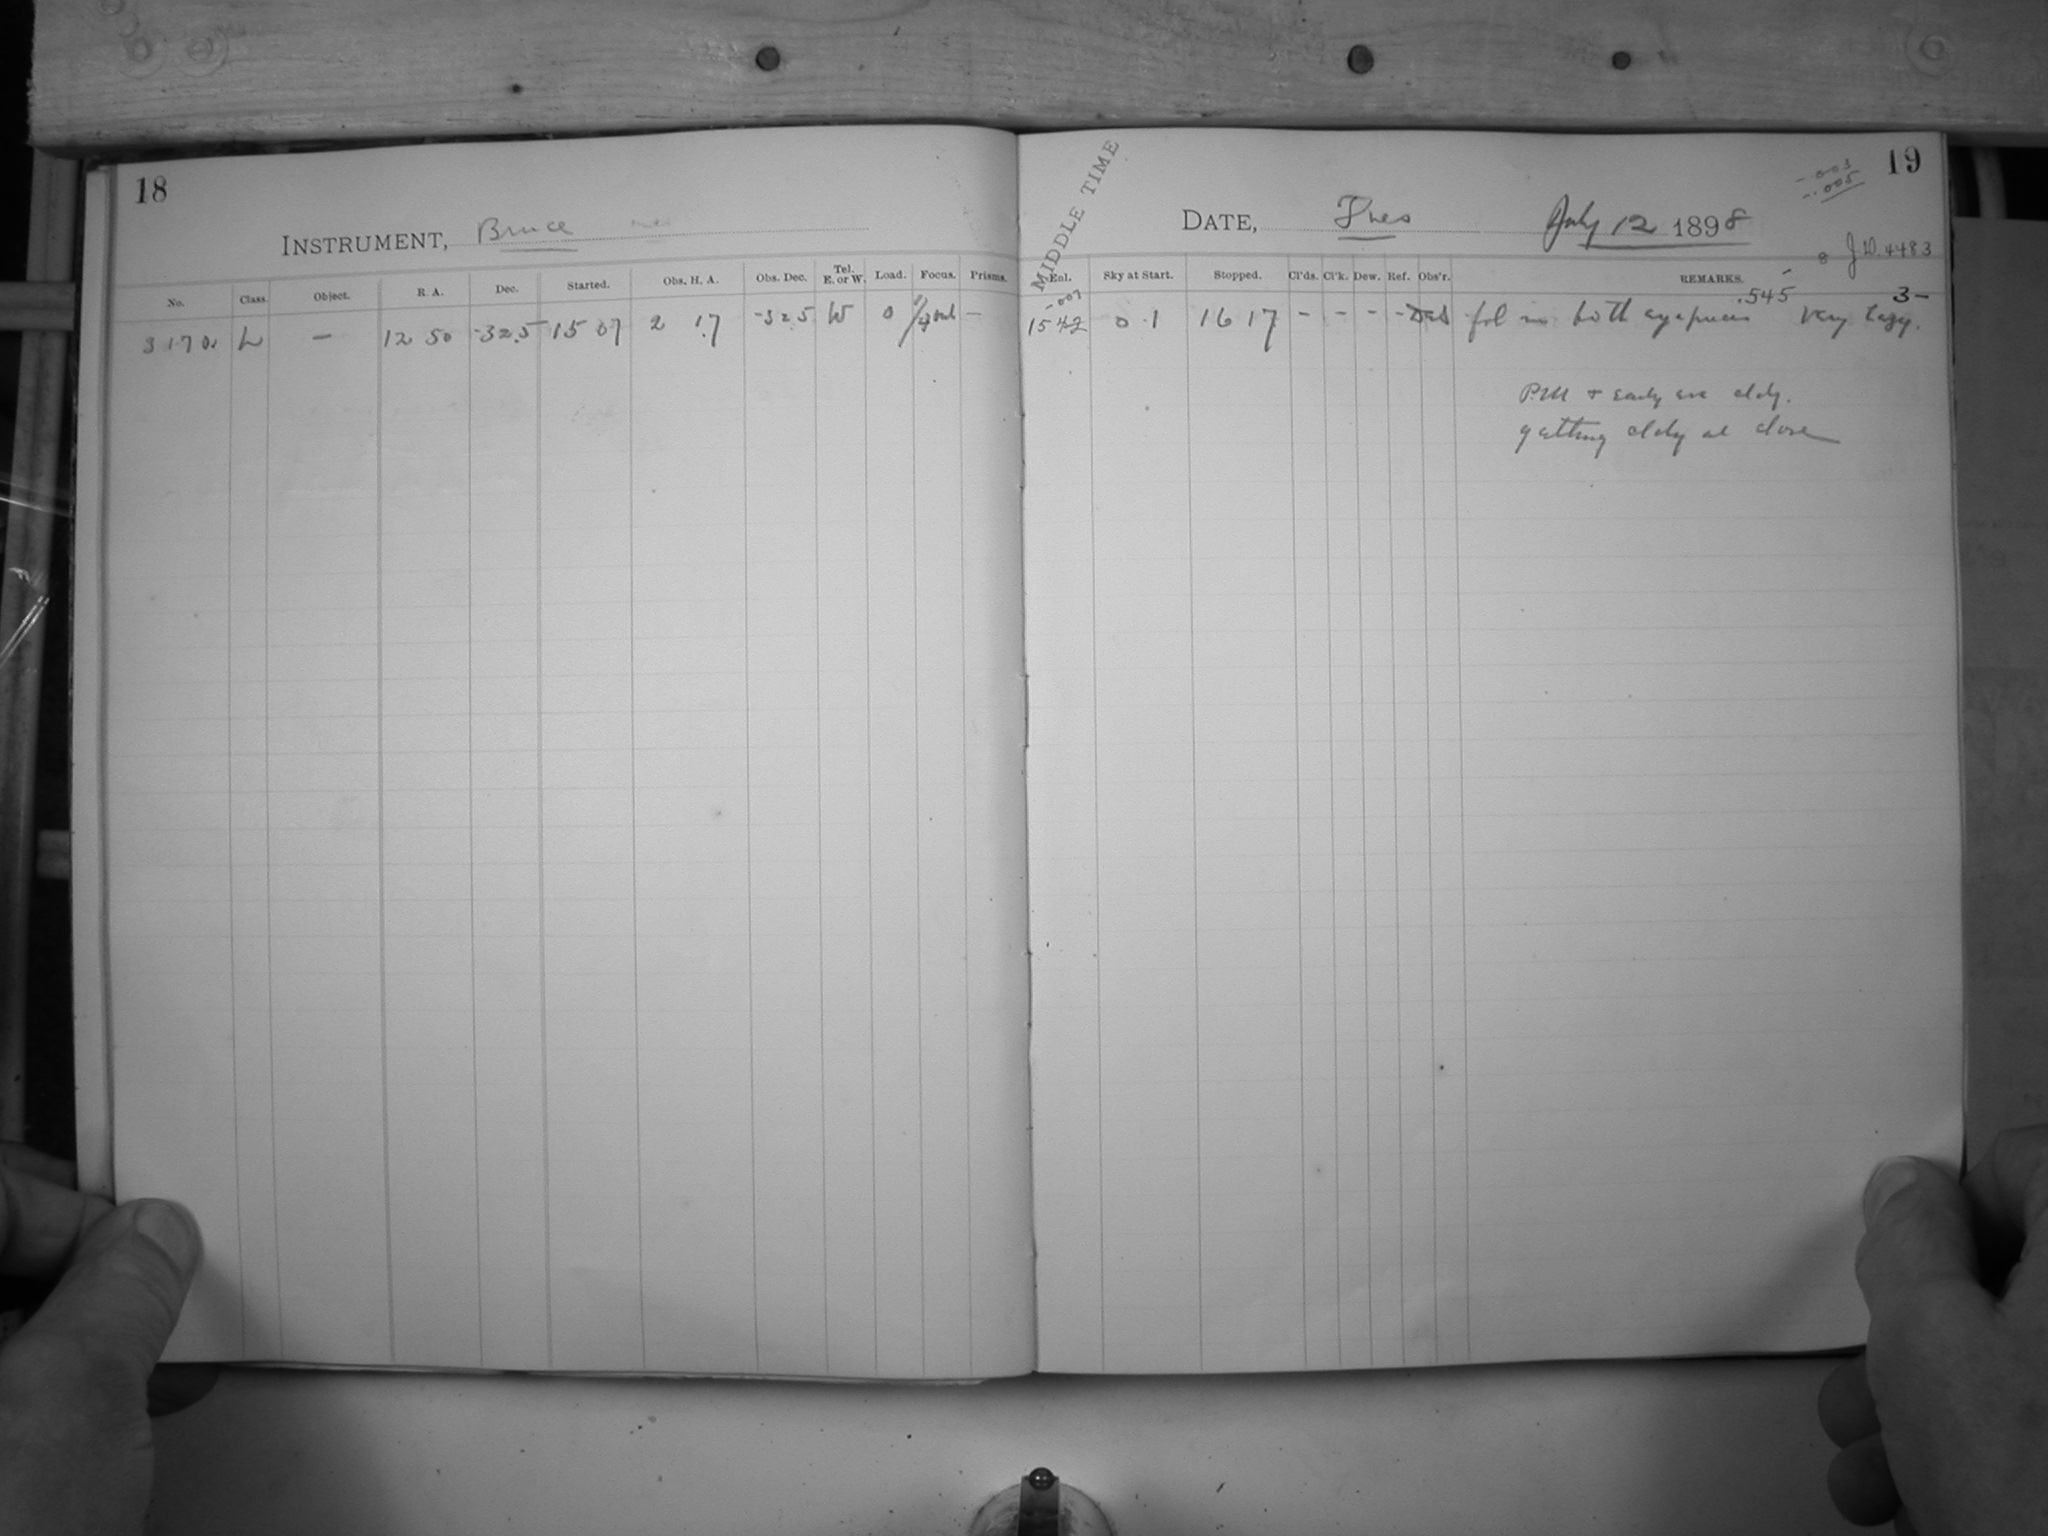 18
INSTRUMENT, Bruce
No. Class. Object. R. A. Dec. Started. Obs. H. A. Obs. Dec. Tel. E. or W. Load. Focus. Prisms.
3170 L — 12 50 -32.5 15 07 2 17 -32.5 W 0 —
19
-.003
-.005
MIDDLE TIME
DATE, Tues July 12 1898
8 J.D. 4483
Enl. Sky at Start. Stopped. Cl'ds. Cl'k. Dew. Ref. Obs'r. REMARKS.
-.007 .545 3-
1542 0 1 16 17 - - - - fol in both eyepieces Very hazy.
P.M + early eve cldy.
getting cldy at close